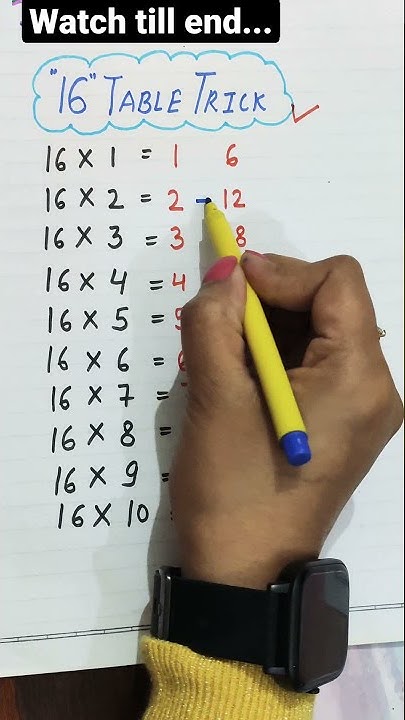 Watch till end...
"16" TABLE TRICK
16 X 1 = 1 6
16 X 2 = 2 - 12
16 X 3 = 3 8
16 X 4 = 4
16 X 5 = 5
16 X 6 = 6
16 X 7 =
16 X 8 =
16 X 9 =
16 X 10